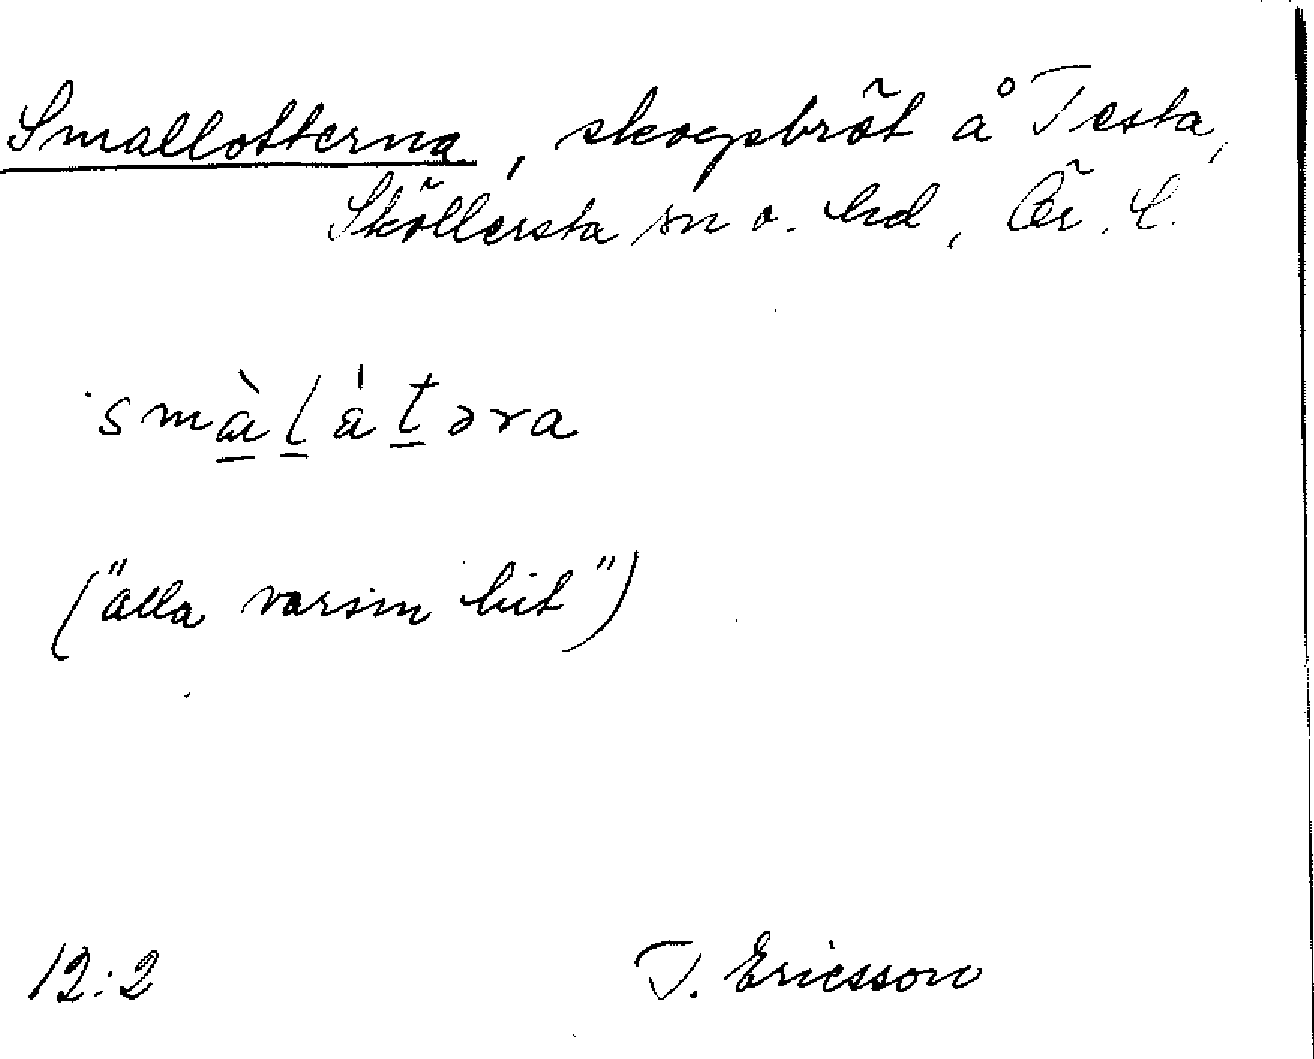 Smallotterna, skogsbröt å Testa,
Sköllersta sn o. hd, Ör. l.
smàlátəra
("alla varsin bit")
12:2 T. Ericsson